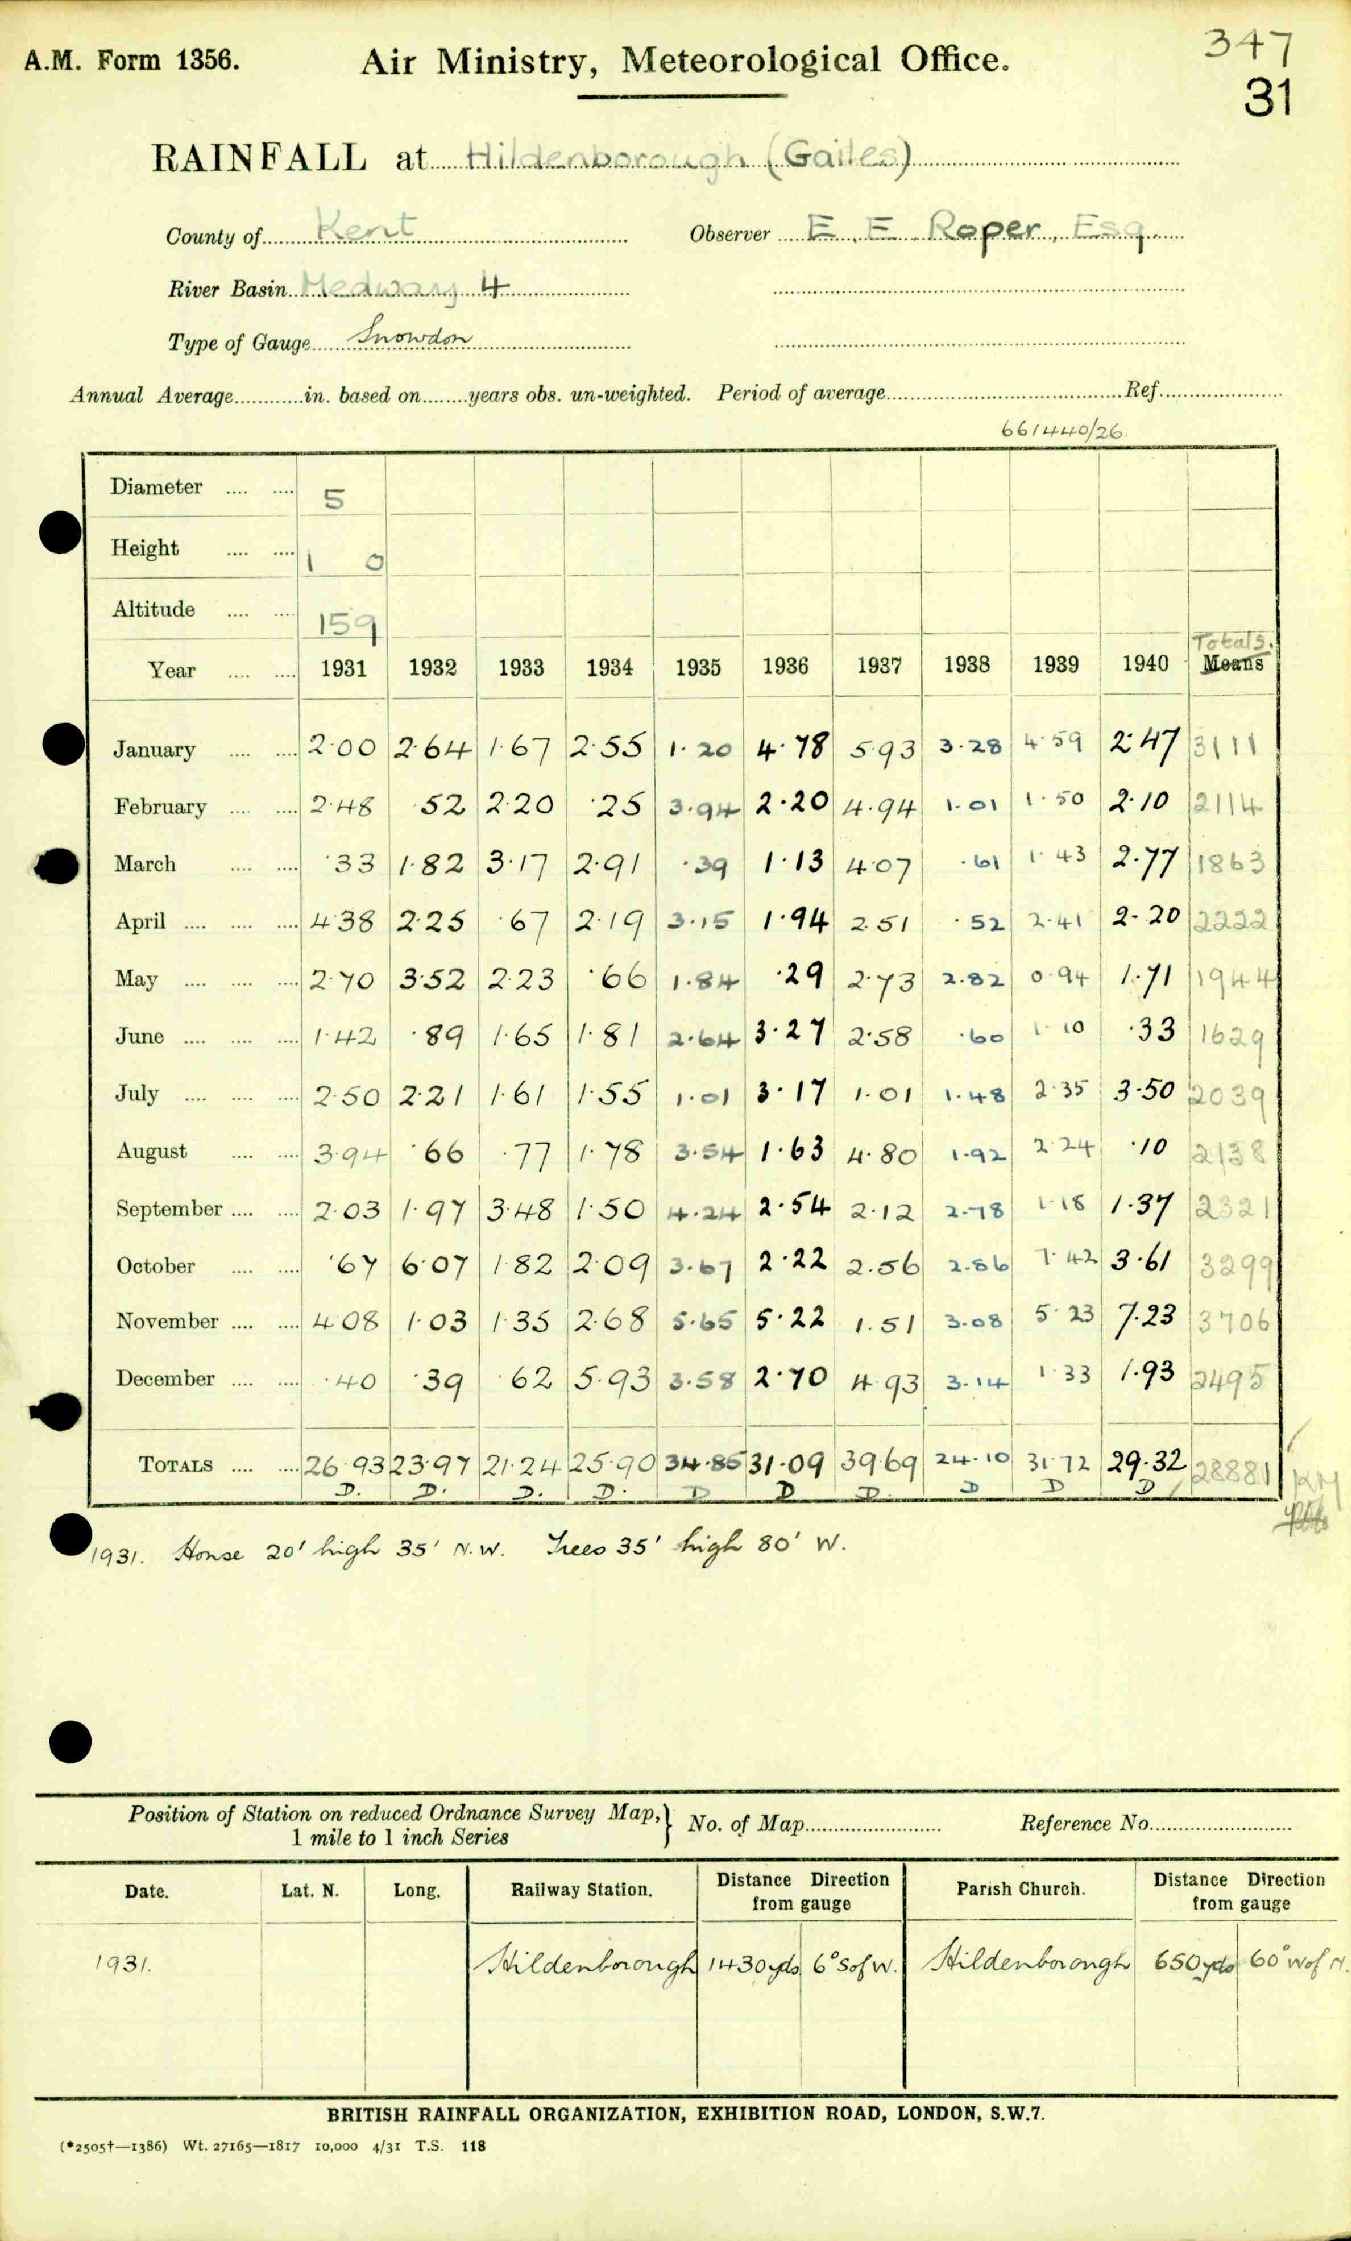 A.M. Form 1356.
Air Ministry, Meteorological Office.
347
31
RAINFALL at Hildenborough (Gailes)
County of Kent
Observer E. E. Roper, Esq.
River Basin Medway 4
Type of Gauge Snowdon
Annual Average in. based on years obs. un-weighted. Period of average Ref.
661440/26
Diameter 5
Height 1 0
Altitude 159
Totals.
Year 1931 1932 1933 1934 1935 1936 1937 1938 1939 1940 Means
January 2·00 2·64 1·67 2·55 1·20 4·78 5·93 3·28 4·59 2·47 3111
February 2·48 ·52 2·20 ·25 3·94 2·20 4·94 1·01 1·50 2·10 2114
March ·33 1·82 3·17 2·91 ·39 1·13 4·07 ·61 1·43 2·77 1863
April 4·38 2·25 ·67 2·19 3·15 1·94 2·51 ·52 2·41 2·20 2222
May 2·70 3·52 2·23 ·66 1·84 ·29 2·73 2·82 0·94 1·71 1944
June 1·42 ·89 1·65 1·81 2·64 3·27 2·58 ·60 1·10 ·33 1629
July 2·50 2·21 1·61 1·55 1·01 3·17 1·01 1·48 2·35 3·50 2039
August 3·94 ·66 ·77 1·78 3·54 1·63 4·80 1·92 2·24 ·10 2138
September 2·03 1·97 3·48 1·50 4·24 2·54 2·12 2·78 1·18 1·37 2321
October ·67 6·07 1·82 2·09 3·67 2·22 2·56 2·86 7·42 3·61 3299
November 4·08 1·03 1·35 2·68 5·65 5·22 1·51 3·08 5·23 7·23 3706
December ·40 ·39 ·62 5·93 3·58 2·70 4·93 3·14 1·33 1·93 2495
TOTALS 26·93 23·97 21·24 25·90 34·85 31·09 39·69 24·10 31·72 29·32 28881
D. D. D. D. D D D D D D
1931. House 20' high 35' N.W. Trees 35' high 80' W.
Position of Station on reduced Ordnance Survey Map,
1 mile to 1 inch Series
No. of Map
Reference No.
Date. Lat. N. Long. Railway Station. Distance Direction from gauge Parish Church. Distance Direction from gauge
1931. Hildenborough 1430 yds 6° S of W. Hildenborough 650 yds 60° W of N.
BRITISH RAINFALL ORGANIZATION, EXHIBITION ROAD, LONDON, S.W.7.
(*2505†—1386) Wt. 27165—1817 10,000 4/31 T.S. 118